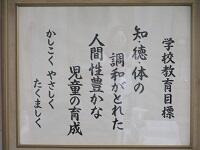 学校教育目標
知・徳・体の
調和がとれた
人間性豊かな
児童の育成
かしこく やさしく
たくましく